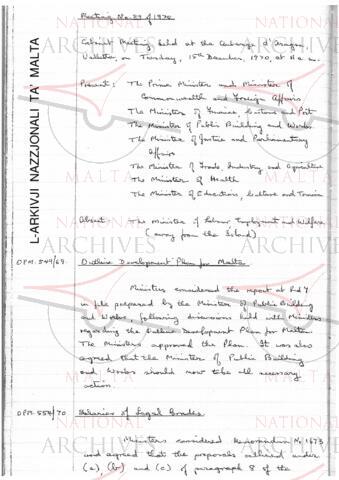 L-ARKIVJI NAZZJONALI TA' MALTA
Meeting No. 39 of 1970
Cabinet Meeting held at the Auberge d'Aragon,
Valletta, on Tuesday, 15th December, 1970, at
Present: The Prime Minister and Minister of
Commonwealth and Foreign Affairs
The Minister of Finance, Customs and Port
The Minister of Public Building and Works
The Minister of Justice and Parliamentary
Affairs
The Minister of Trade, Industry and Agriculture
The Minister of Health
The Minister of Education, Culture and Tourism
Absent: The Minister of Labour Employment and Welfare
(away from the Island)
OPM. 549/69. Outline Development Plan for Malta
Ministers considered the report at Red 4
in file prepared by the Minister of Public Building
and Works, following discussions held with Ministers
regarding the Outline Development Plan for Malta.
The Ministers approved the Plan. It was also
agreed that the Minister of Public Building
and Works should now take all necessary
action.
OPM. 554/70 Salaries of Legal Grades
Ministers considered Memorandum No 1673
and agreed that the proposals outlined under
(a), (b) and (c) of paragraph 8 of the
NATIONAL
ARCHIVES
MALTA